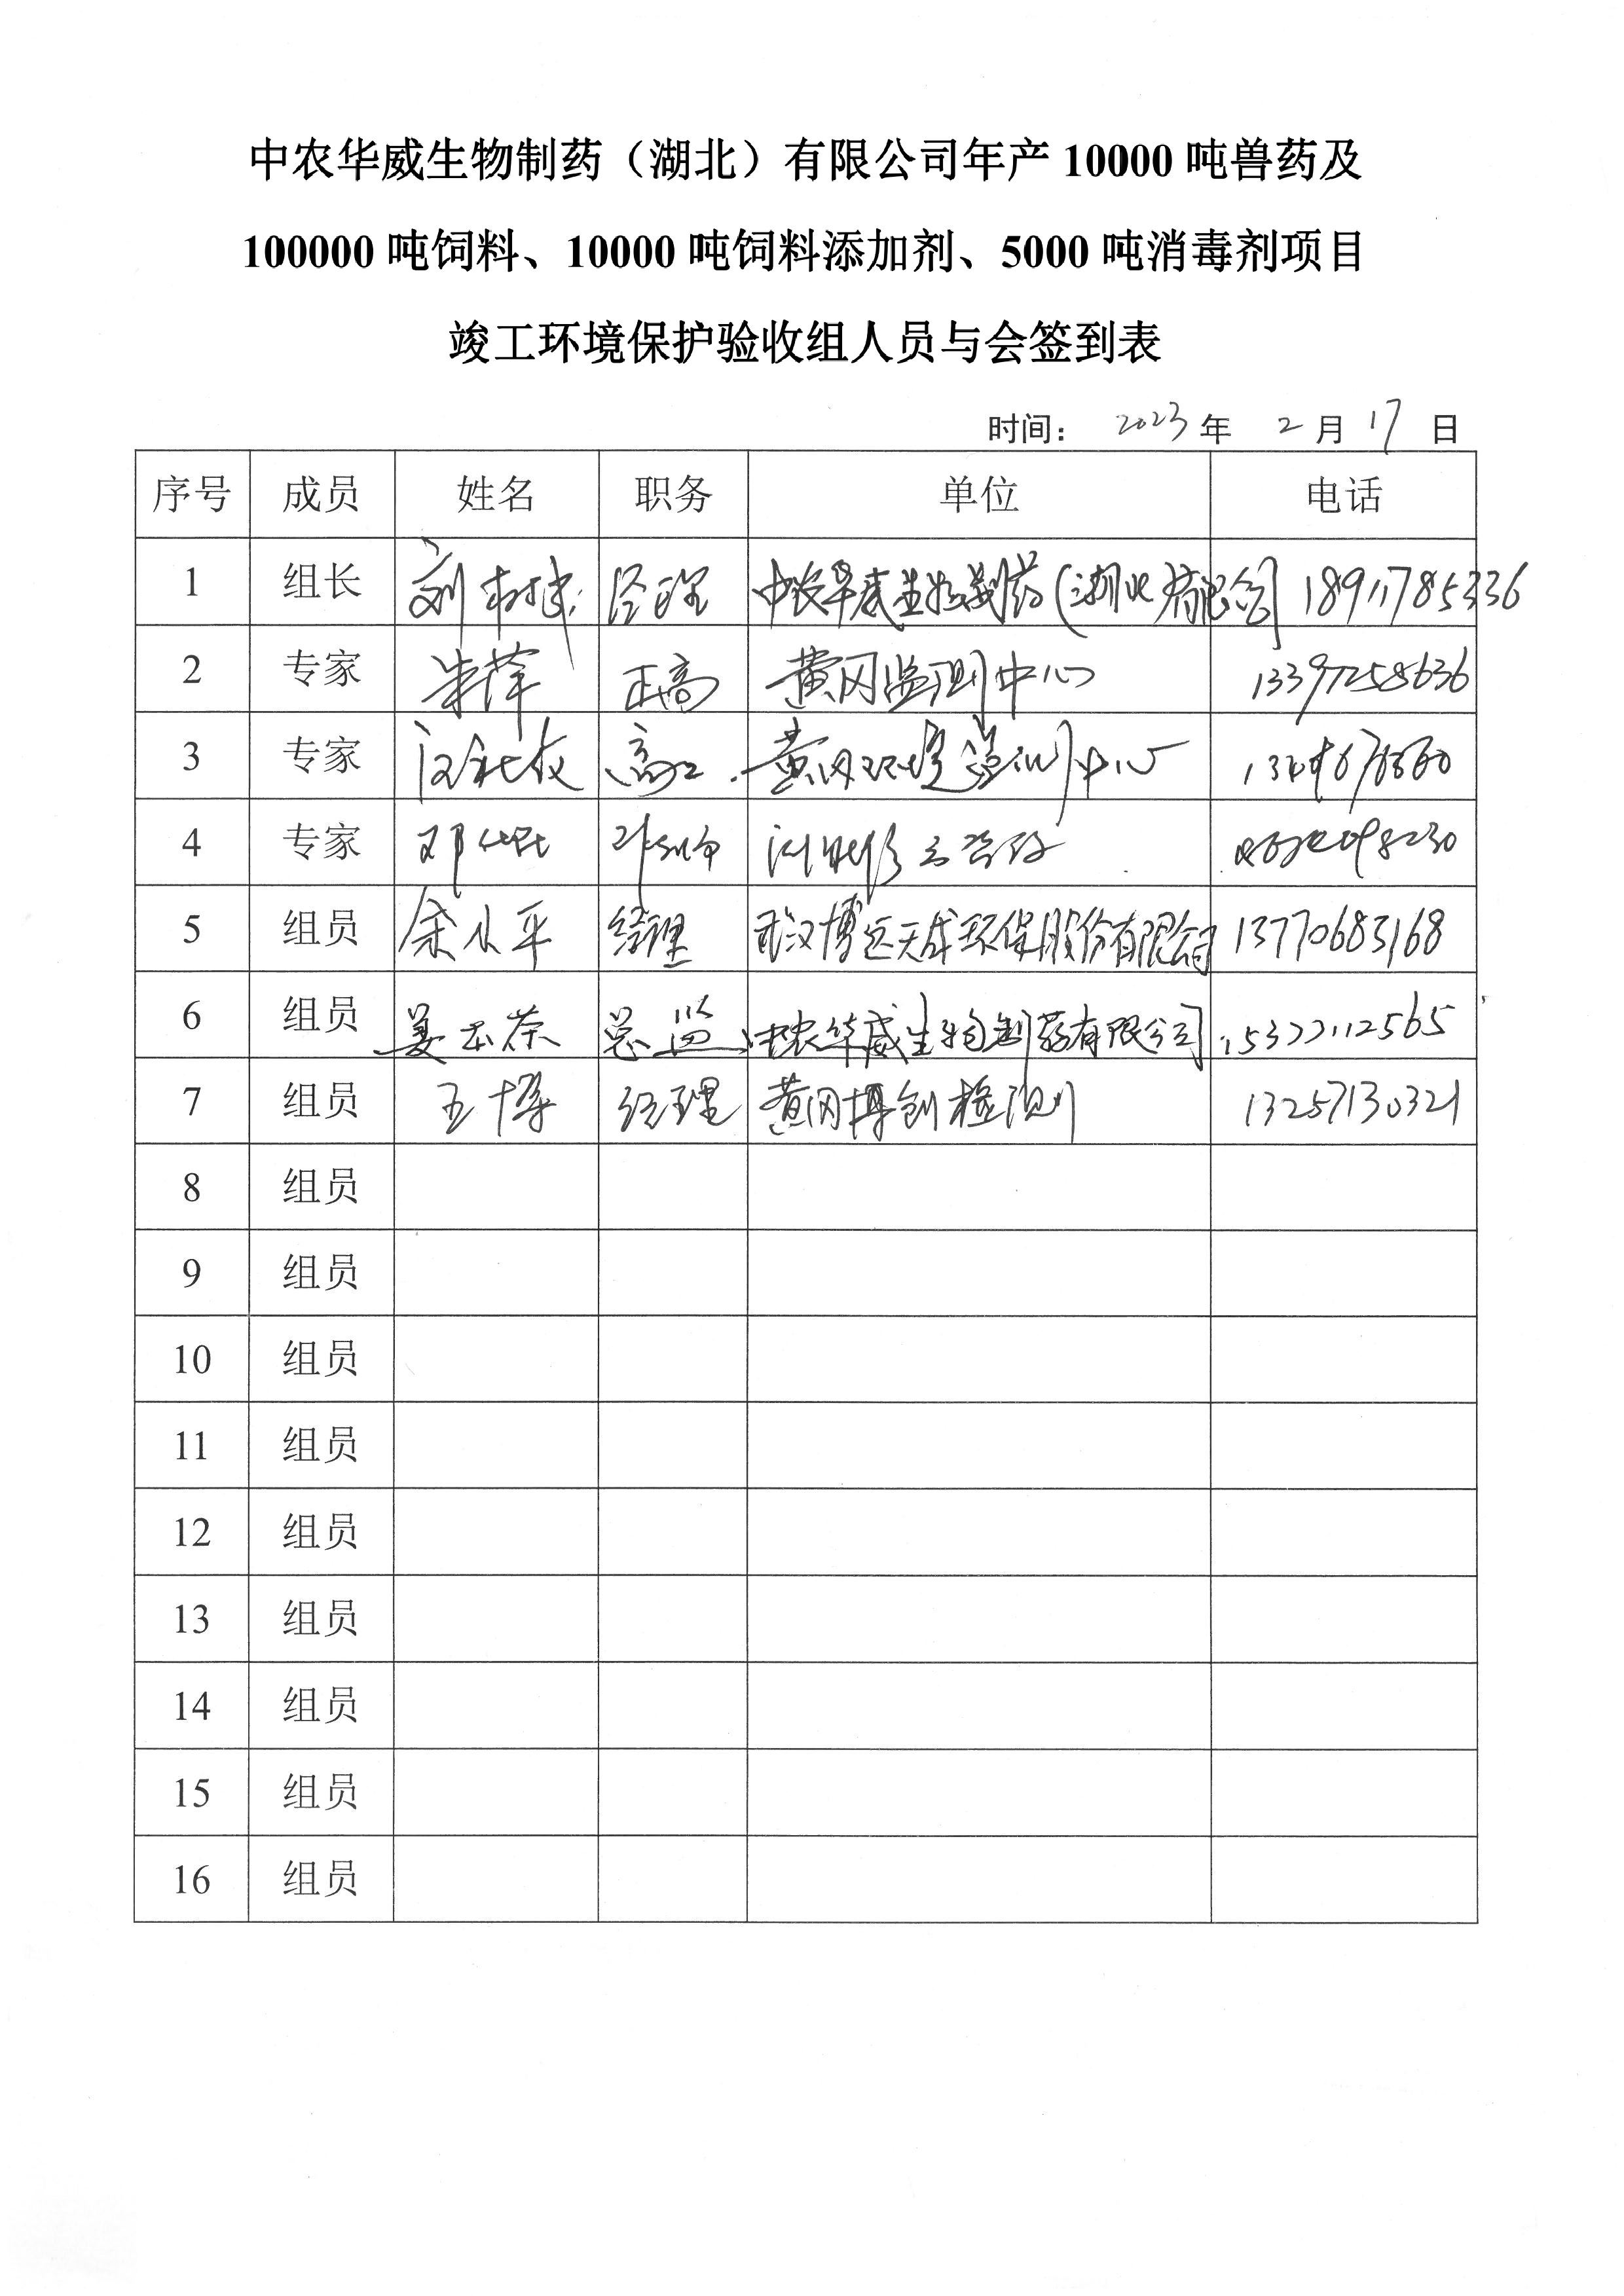 中农华威生物制药（湖北）有限公司年产 10000 吨兽药及
100000 吨饲料、10000 吨饲料添加剂、5000 吨消毒剂项目
竣工环境保护验收组人员与会签到表
时间： 2023 年 2 月 17 日
序号 成员 姓名 职务 单位 电话
1 组长 刘 经理 中农华威生物制药(湖北)有限公司 18911785336
2 专家 朱萍 正高 黄冈监测中心 13397258636
3 专家 高工 黄冈环境监测中心
4 专家 邓
5 组员 余水平 经理 武汉博远天成环保股份有限公司 13770683168
6 组员 姜 总监 中农华威生物制药有限公司 15377112565
7 组员 王博 经理 黄冈博创检测 13257130321
8 组员
9 组员
10 组员
11 组员
12 组员
13 组员
14 组员
15 组员
16 组员